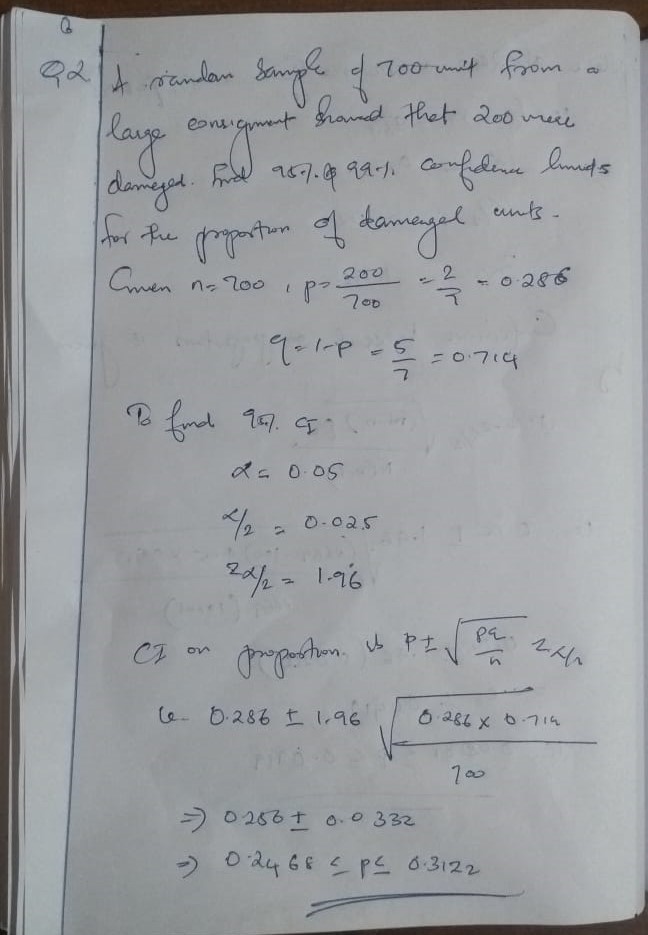 Q2 A random sample of 700 unit from a
large consignment showed that 200 were
damaged. Find 95% & 99% confidence limits
for the proportion of damaged units.
Given n = 700, p = 200/700 = 2/7 = 0.286
q = 1-p = 5/7 = 0.714
To find 95% CI
α = 0.05
α/2 = 0.025
zα/2 = 1.96
CI on proportion is p ± √(pq/n) zα/2
ie. 0.286 ± 1.96 √(0.286 × 0.714/700)
⇒ 0.286 ± 0.0332
⇒ 0.2468 ≤ p ≤ 0.3122